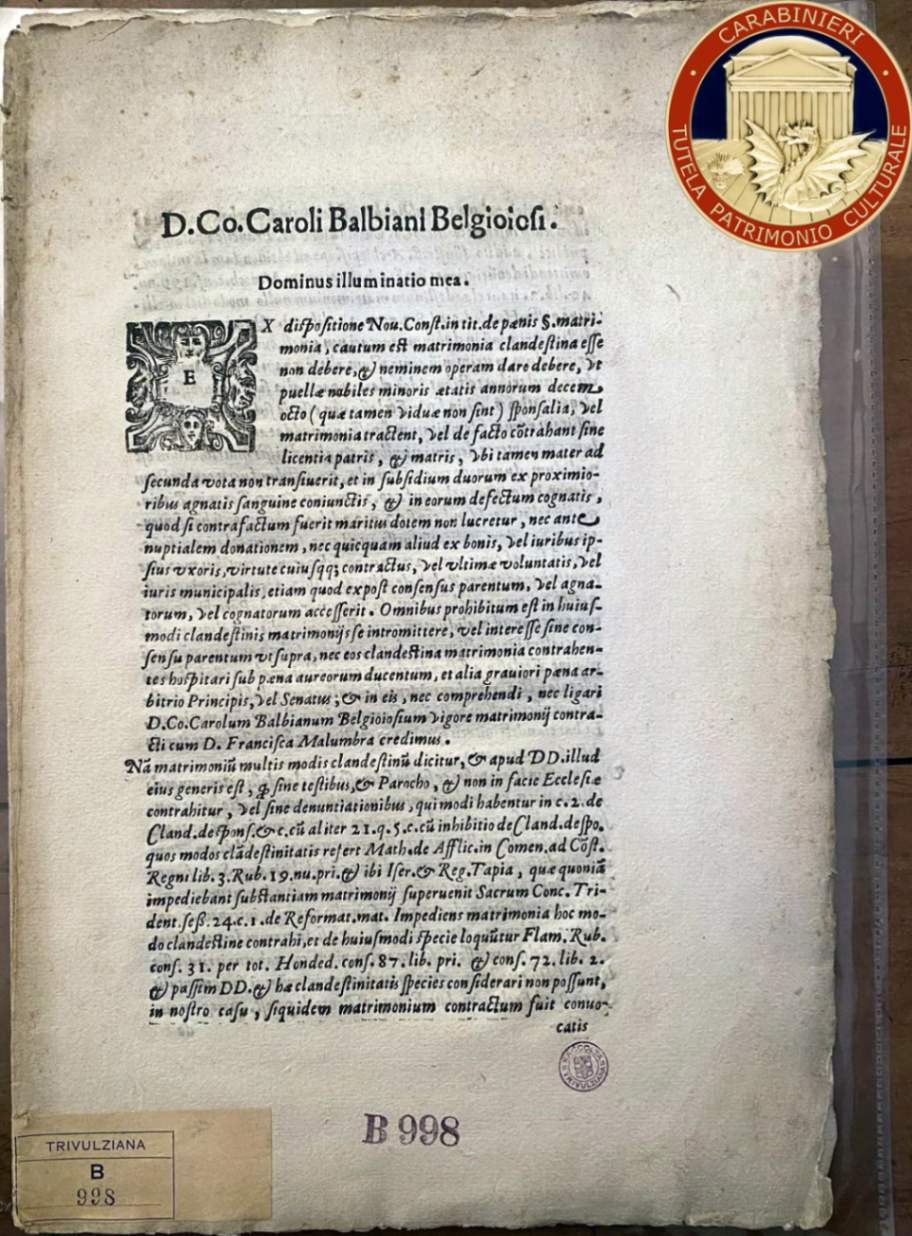 CARABINIERI
TUTELA PATRIMONIO CULTURALE
D.Co.Caroli Balbiani Belgioiosi.
Dominus illuminatio mea.
EX dispositione Nou.Const.in tit.de pænis §.matri-
monia, cautum est matrimonia clandestina esse
non debere, & neminem operam daro debere, vt
puellæ nobiles minoris ætatis annorum decem
octo ( quæ tamen viduæ non sint ) sponsalia, vel
matrimonia tractent, vel de facto cõtrahant sine
licentia patris, & matris, vbi tamen mater ad
secunda vota non transiuerit, et in subsidium duorum ex proximio-
ribus agnatis sanguine coniunctis, & in eorum defectum cognatis,
quod si contrafactum fuerit maritus dotem non lucretur, nec ante
nuptialem donationem, nec quicquam aliud ex bonis, vel iuribus ip-
sius vxoris, virtute cuiusqq; contractus, vel vltimæ voluntatis, vel
iuris municipalis, etiam quod expost consensus parentum, vel agna-
torum, vel cognatorum accesserit. Omnibus prohibitum est in huius-
modi clandestinis matrimonijs se intromittere, vel interesse sine con-
sensu parentum vt supra, nec eos clandestina matrimonia contrahen-
tes hospitari sub pæna aureorum ducentum, et alia grauiori pæna ar-
bitrio Principis, vel Senatus; & in eis, nec comprehendi, nec ligari
D.Co.Carolum Balbianum Belgioiosium vigore matrimonij contra-
cti cum D. Francisca Malumbra credimus.
Nã matrimoniũ multis modis clandestinũ dicitur, & apud DD.illud
eius generis est, q̃ sine testibus, & Parocho, & non in facie Ecclesiæ
contrahitur, vel sine denuntiationibus, qui modi habentur in c.2.de
Cland.desponf.& c.cũ aliter 21.q.5.c.cũ inhibitio de Cland.despo.
quos modos clãdestinitatis refert Math.de Afflic.in Comen.ad Cõst.
Regni lib.3.Rub.19.nu.pri.& ibi Iser.& Reg.Tapia, quæ quoniã
impediebant substantiam matrimonij superuenit Sacrum Conc. Tri-
dent.seß.24.c.1.de Reformat.mat. Impediens matrimonia hoc mo-
do clandestine contrahi, et de huiusmodi specie loquũtur Flam. Rub.
cons. 31. per tot. Honded. cons. 87. lib. pri. & cons. 72. lib. 2.
& passim DD.& hæ clandestinitatis species considerari non possunt,
in nostro casu, siquidem matrimonium contractum fuit conuo-
catis
RACCOLTA TRIVULZIANA
B 998
TRIVULZIANA
B
998